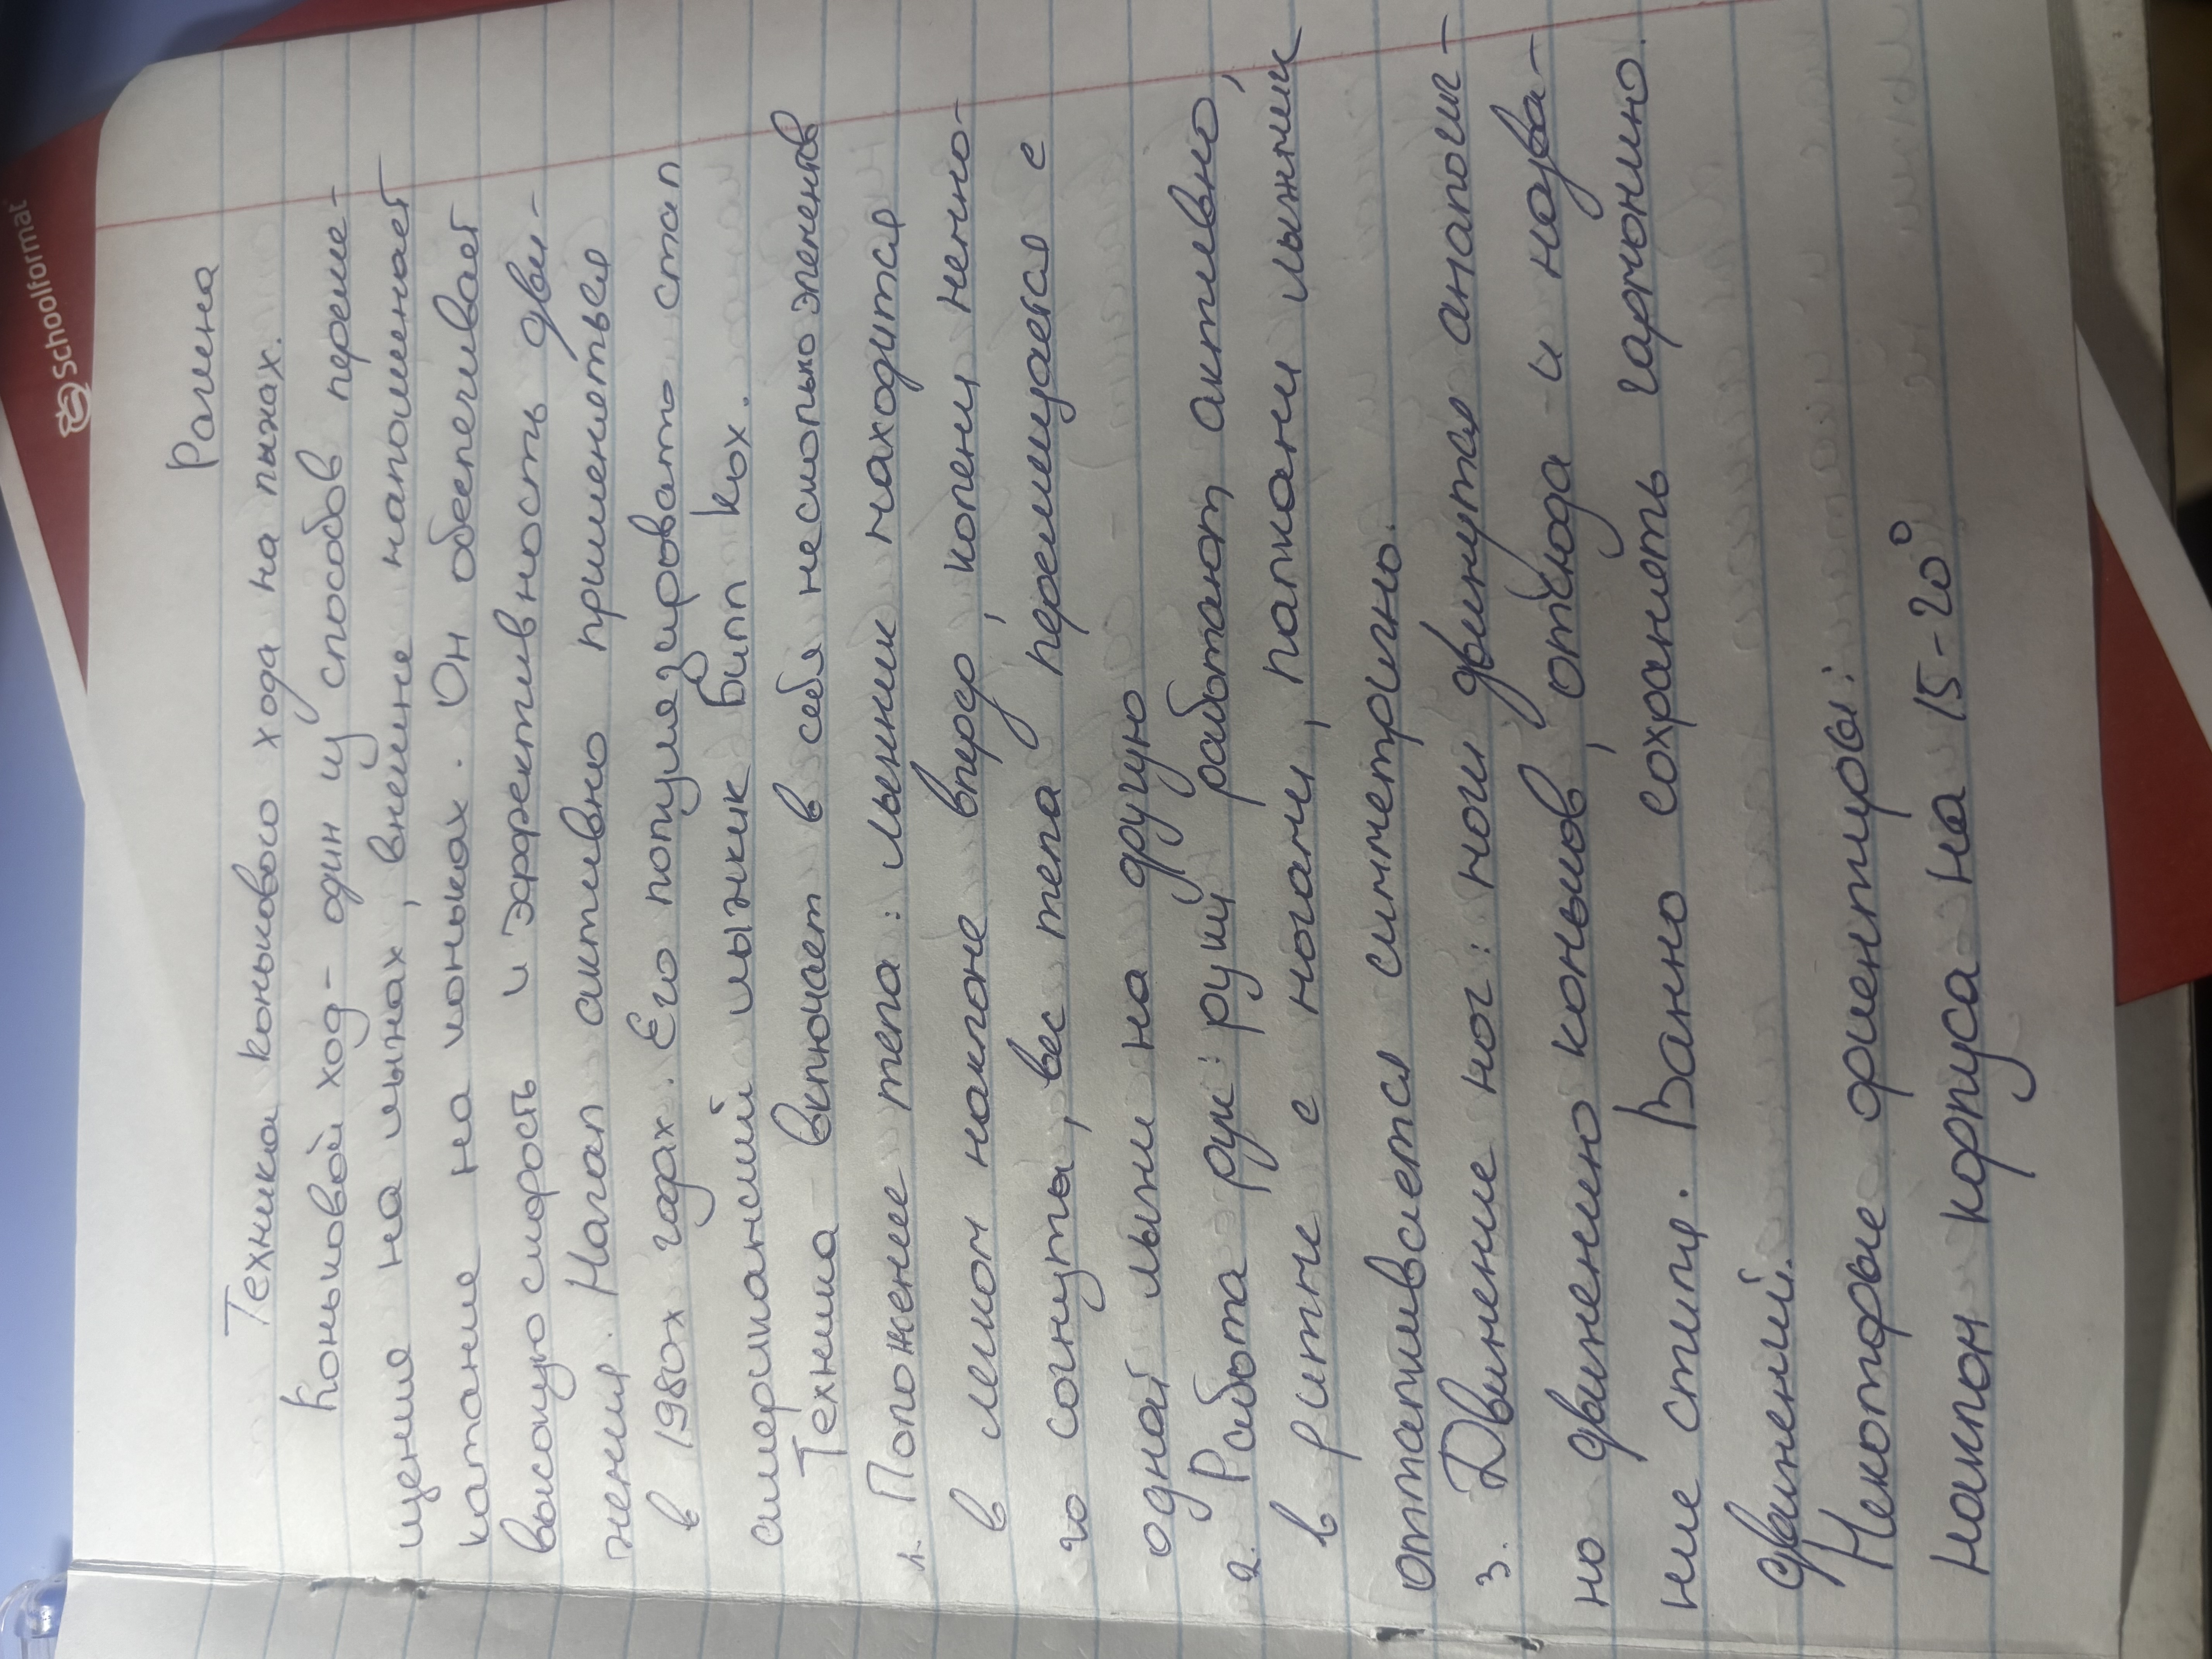 Schoolformat
Рагина
Техника конькового хода на лыжах.
Коньковой ход - один из способов переме-
щения на лыжах, внешне напоминает
катание на коньках. Он обеспечивает
высокую скорость и эффективность дви-
жения. Начал активно применяться
в 1980х годах. Его популязировать стал
американский лыжник Билл Кох.
Техника - включает в себя несколько элементов
1. Положение тела: лыжник находится
в легком наклоне вперёд, колени немно-
го согнуты, вес тела перемещается с
одной лыжи на другую
2. Работа рук: руки работают активно,
в ритме с ногами, палками лыжник
отталкивается симметрично.
3. Движение ног: ноги движутся аналогич-
но движению коньков, отсюда - и назва-
ние стиля. Важно сохранять гармонию
движений.
Некоторые ориентиры:
Наклон корпуса на 15-20°